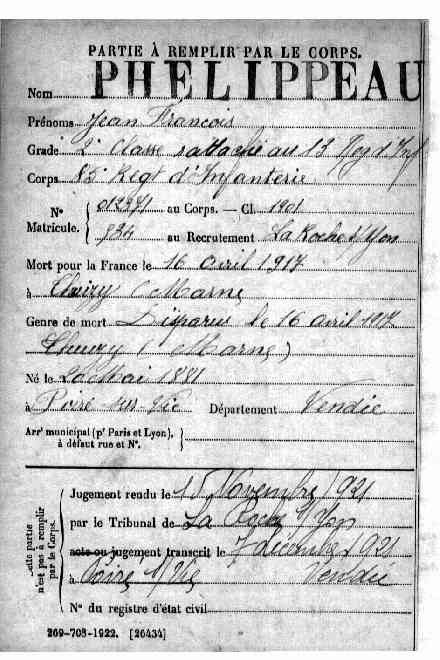 PARTIE À REMPLIR PAR LE CORPS.
Nom PHELIPPEAU
Prénoms Jean Francois
Grade 2e Classe rattaché au 13 Reg d'Inf
Corps 85e Regt d'Infanterie
N° Matricule. { 012371 au Corps. — Cl. 1901
934 au Recrutement La Roche s/Yon
Mort pour la France le 16 avril 1917
à Thuizy (Marne
Genre de mort Disparu le 16 avril 1917
Thuizy (Marne)
Né le 20 Mai 1881
à Poiré sur Vie Département Vendée
Arrt municipal (pr Paris et Lyon), à défaut rue et N°. }
Cette partie n'est pas à remplir par le Corps.
Jugement rendu le 15 Novembre 1921
par le Tribunal de La Roche s/Yon
acte ou jugement transcrit le 7 décembre 1921
à Poiré s/Vie Vendée
N° du registre d'état civil
269-708-1922. [26434]